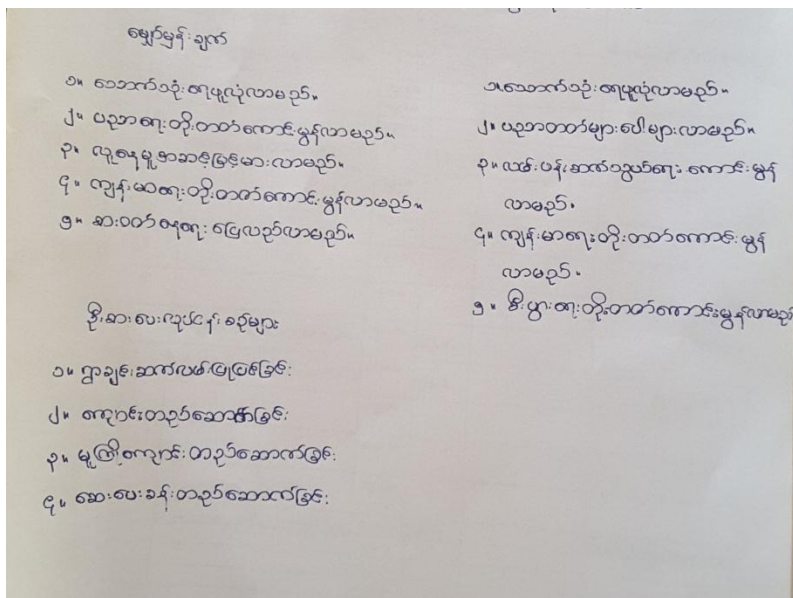 မျှော်မှန်းချက်
၁။ သောက်သုံးရေဖူလုံလာမည်။
၂။ ပညာရေးတိုးတတ်ကောင်းမွန်လာမည်။
၃။ လူနေမှုအဆင့်မြင့်မားလာမည်။
၄။ ကျန်းမာရေးတိုးတတ်ကောင်းမွန်လာမည်။
၅။ စားဝတ်နေရေး ပြေလည်လာမည်။
ဦးစားပေးလုပ်ငန်းစဉ်များ
၁။ ရွာချင်းဆက်လမ်းပြုပြင်ခြင်း
၂။ ကျောင်းတည်ဆောက်ခြင်း
၃။ မူကြိုကျောင်းတည်ဆောက်ခြင်း
၄။ ဆေးပေးခန်းတည်ဆောက်ခြင်း
၁။ သောက်သုံးရေဖူလုံလာမည်။
၂။ ပညာတတ်များပေါများလာမည်။
၃။ လမ်းပန်းဆက်သွယ်ရေး ကောင်းမွန်
လာမည်။
၄။ ကျန်းမာရေးတိုးတတ်ကောင်းမွန်
လာမည်။
၅။ စီးပွားရေးတိုးတတ်ကောင်းမွန်လာမည်